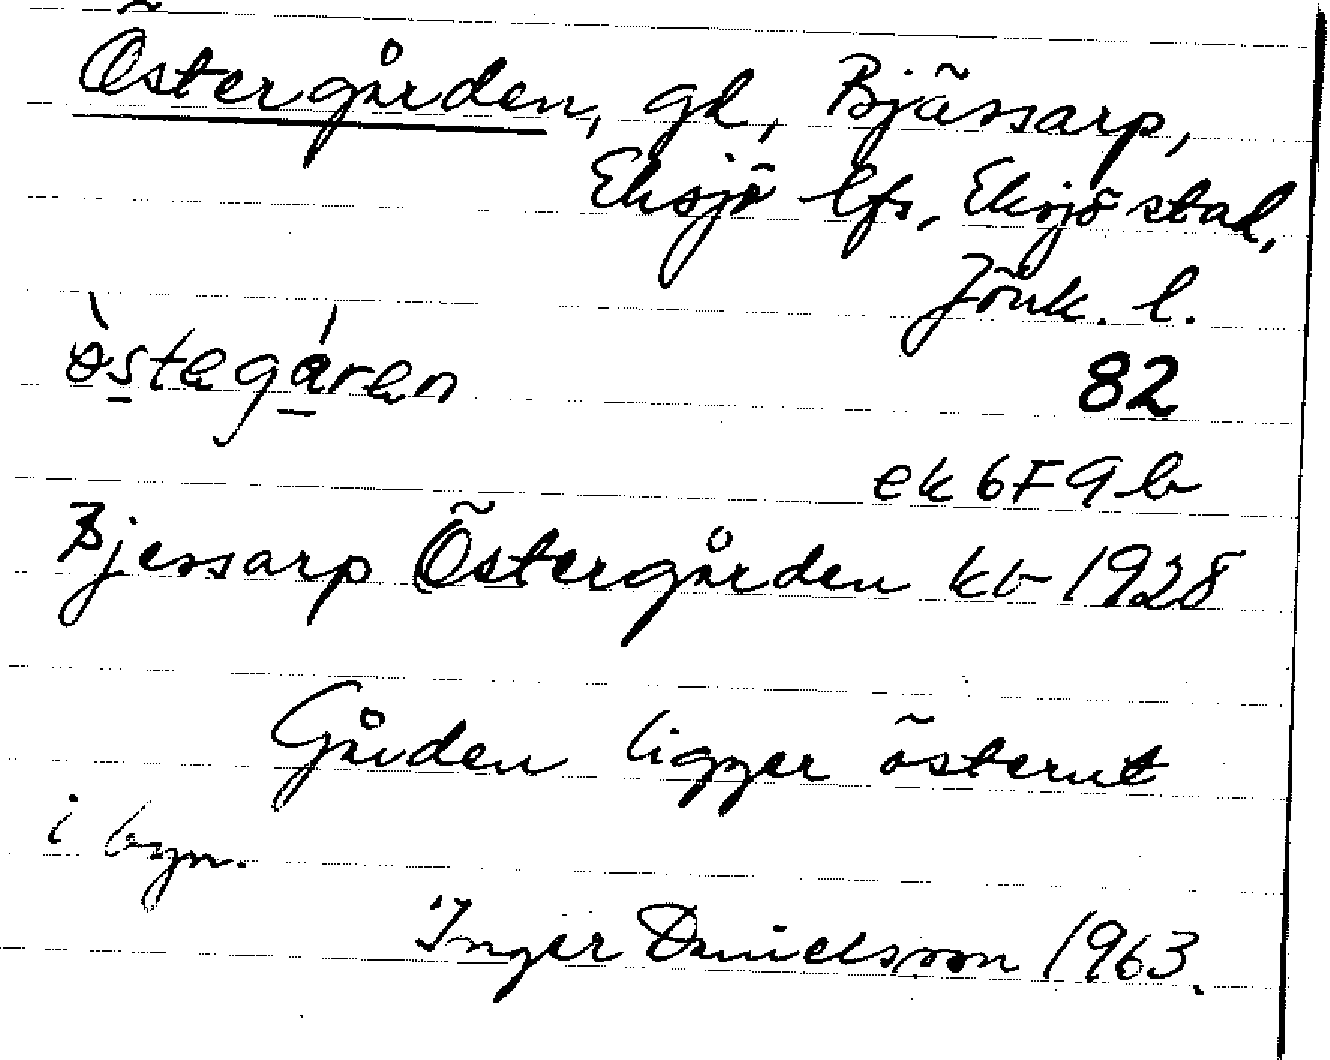 Östergården, gd, Bjässarp,
Eksjö lfs, Eksjö stad,
Jönk. l.
ɵ̀stegáren
82
ek 6F 9b
Bjessarp Östergården kb 1928
Gården ligger österut
i byn.
Inger Danielsson 1963.